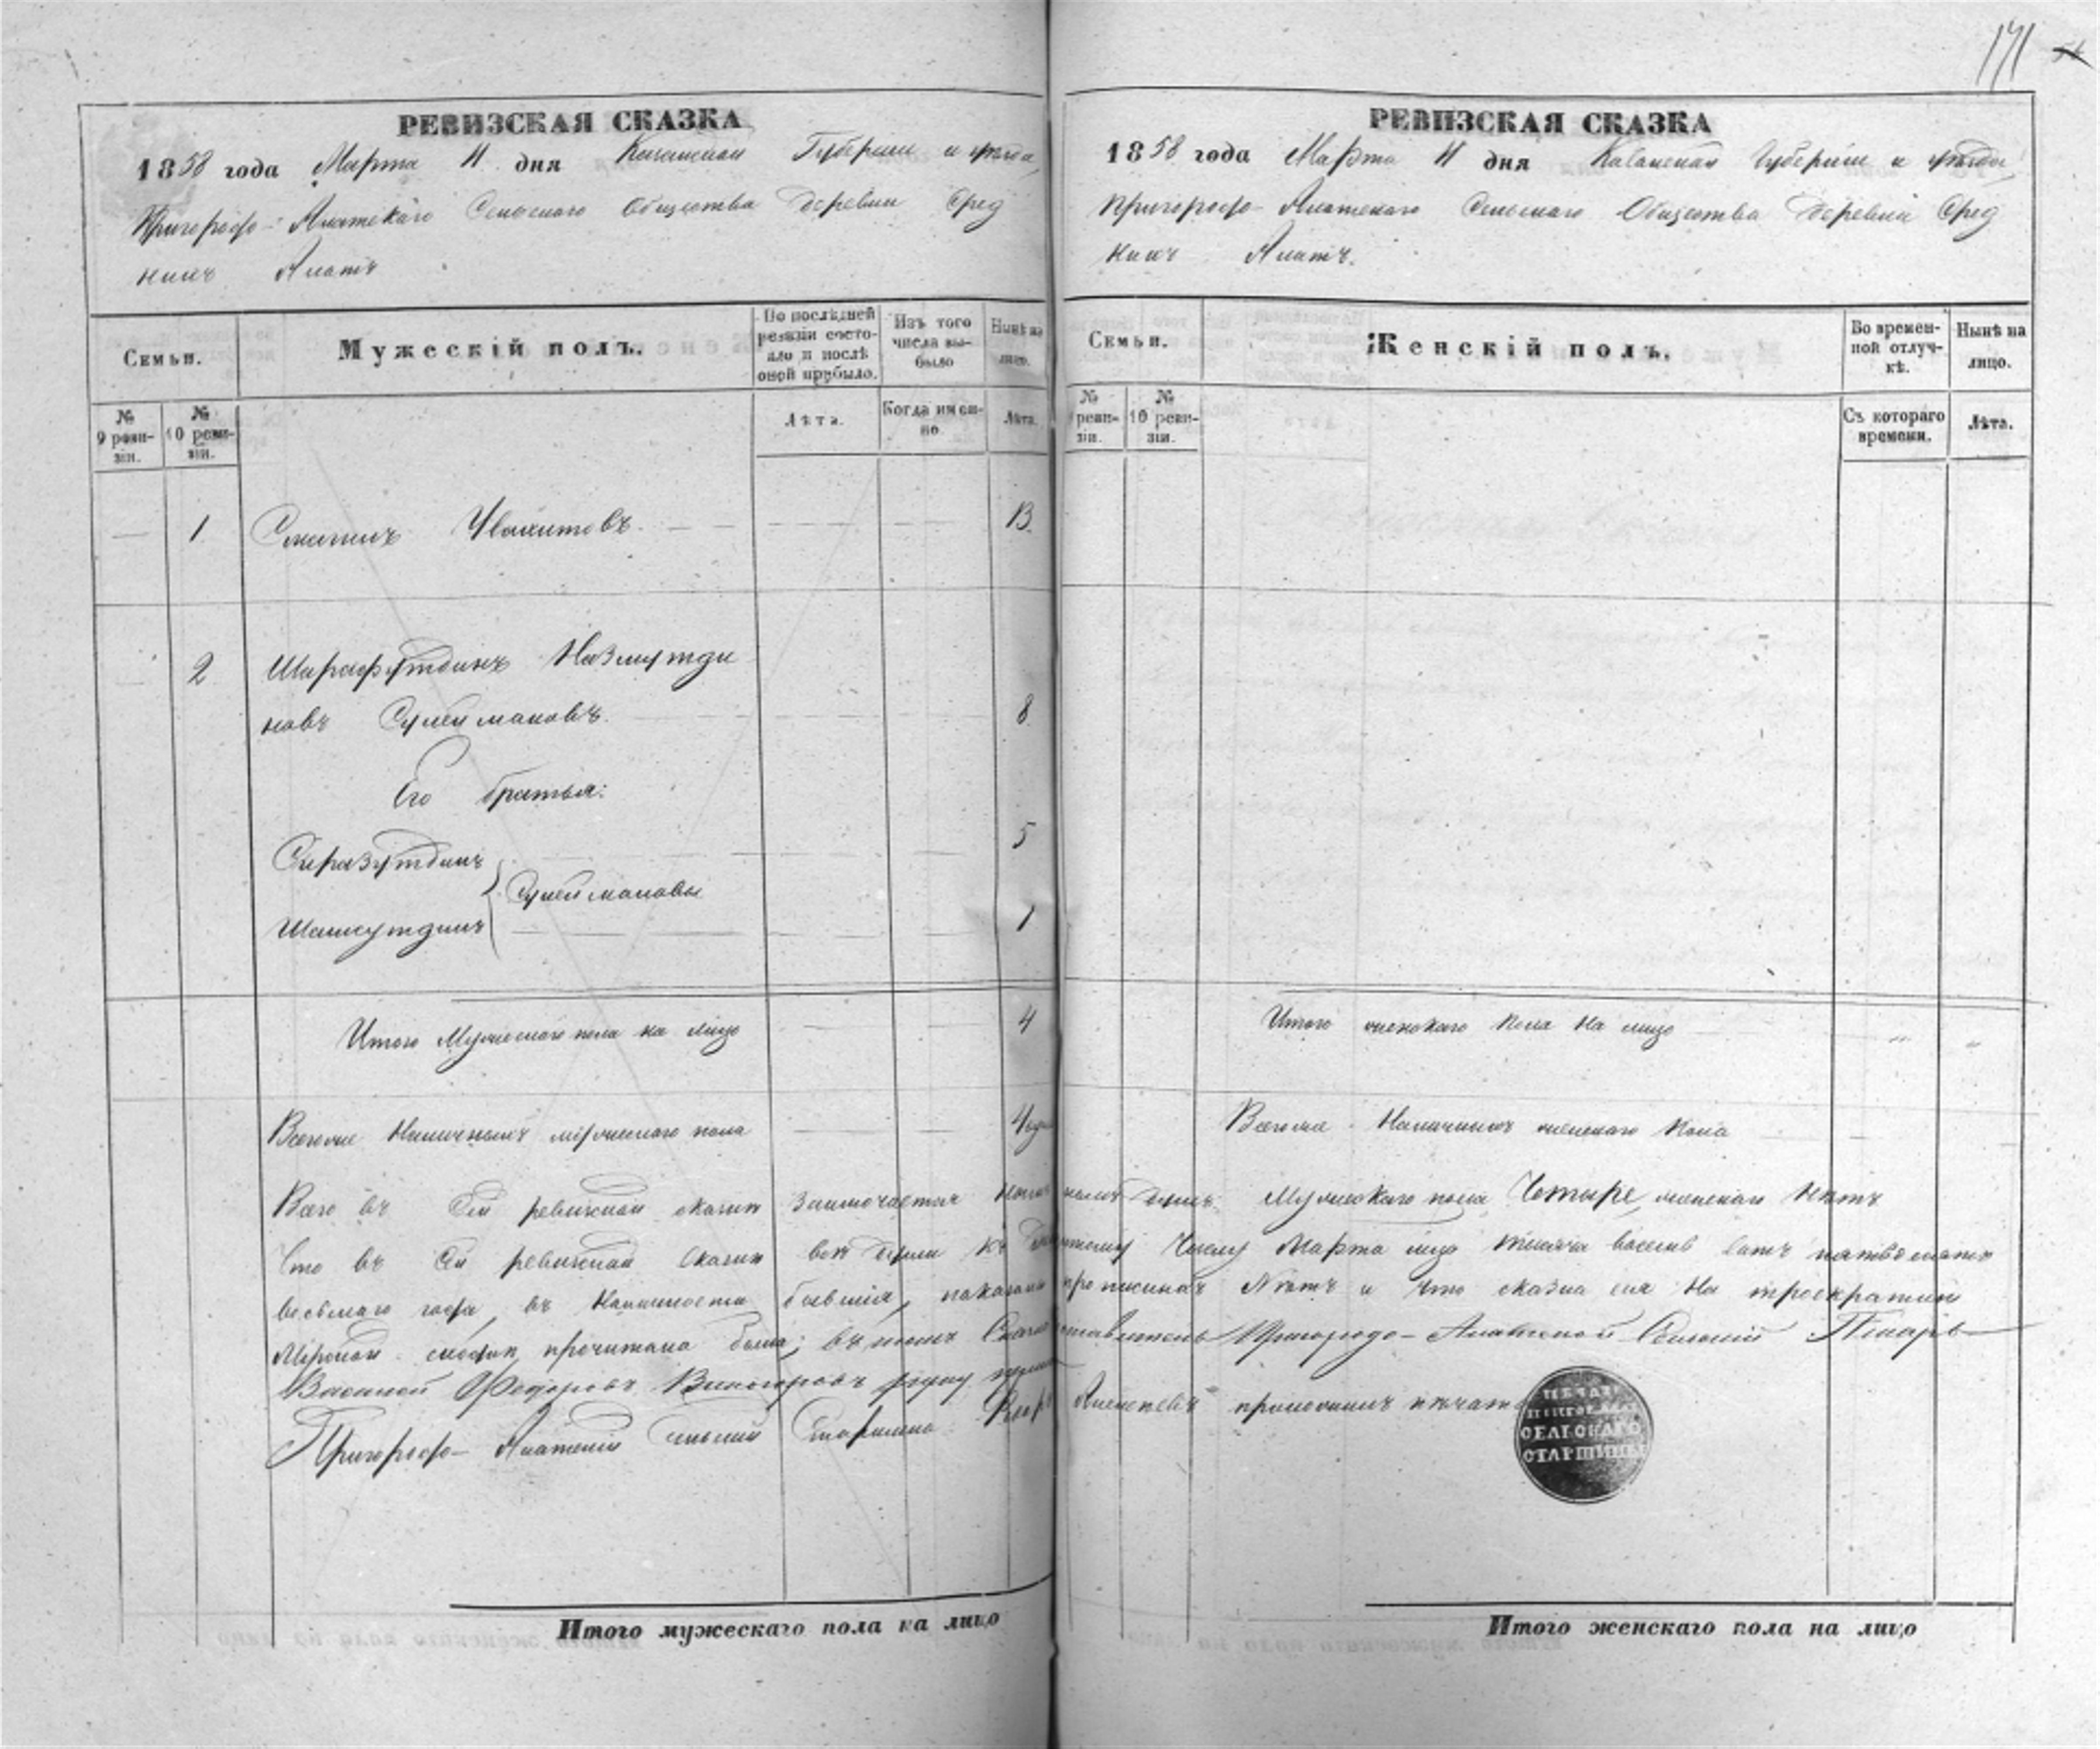 171
РЕВИЗСКАЯ СКАЗКА
1858 года Марта 11 дня Казанской Губерніи и уѣзда,
Пригородо-Алатскаго Сельскаго Общества Деревни Сред
нихъ Алатъ
Семьи.
Мужескій полъ.
По послѣдней ревизіи состояло и послѣ оной прибыло.
Изъ того числа выбыло
Нынѣ на лицо.
№ 9 реви-зіи.
№ 10 реви-зіи.
Лѣта.
Когда имен-но.
Лѣта.
1 13
2 Шарафутдинъ Назмутди
новъ Сулеймановъ 8
Его братья:
Сиразутдинъ 5
Сулеймановы
Шамсутдинъ 1
Итого Мужескаго пола на лицо 4
Всего же Наличныхъ мужескаго пола 4
РЕВИЗСКАЯ СКАЗКА
1858 года Марта 11 дня Казанской Губерніи и уѣзда
Пригородо-Алатскаго Сельскаго Общества Деревни Сред
нихъ Алатъ.
Семьи.
Женскій полъ.
Во времен-ной отлуч-кѣ.
Нынѣ на лицо.
№ реви-зіи.
№ 10 реви-зіи.
Съ котораго времени.
Лѣта.
Итого женскаго пола на лицо
Всего же Наличныхъ женскаго пола
Всего въ сей ревизской сказкѣ заключается налич ныхъ душъ: Мужескаго пола Четыре, женскаго нѣтъ
Что въ сей ревизской сказкѣ всѣ души къ числу Марта тысяча восемь сотъ пятьдесятъ
восьмаго года, въ наличности бывшія, показаны прописныхъ нѣтъ и что сказка сія на троекратномъ
Мірскомъ сходѣ прочитана была; въ томъ Пригородо-Алатской Сельскій Писарь
Василей Федоровъ Виногоровъ руку
Пригородо-Алатскій Сельскій Старшина Алексѣевъ приложилъ печать
ПЕЧАТЬ
СЕЛЬСКАГО
СТАРШИНЫ
Итого мужескаго пола на лицо
Итого женскаго пола на лицо